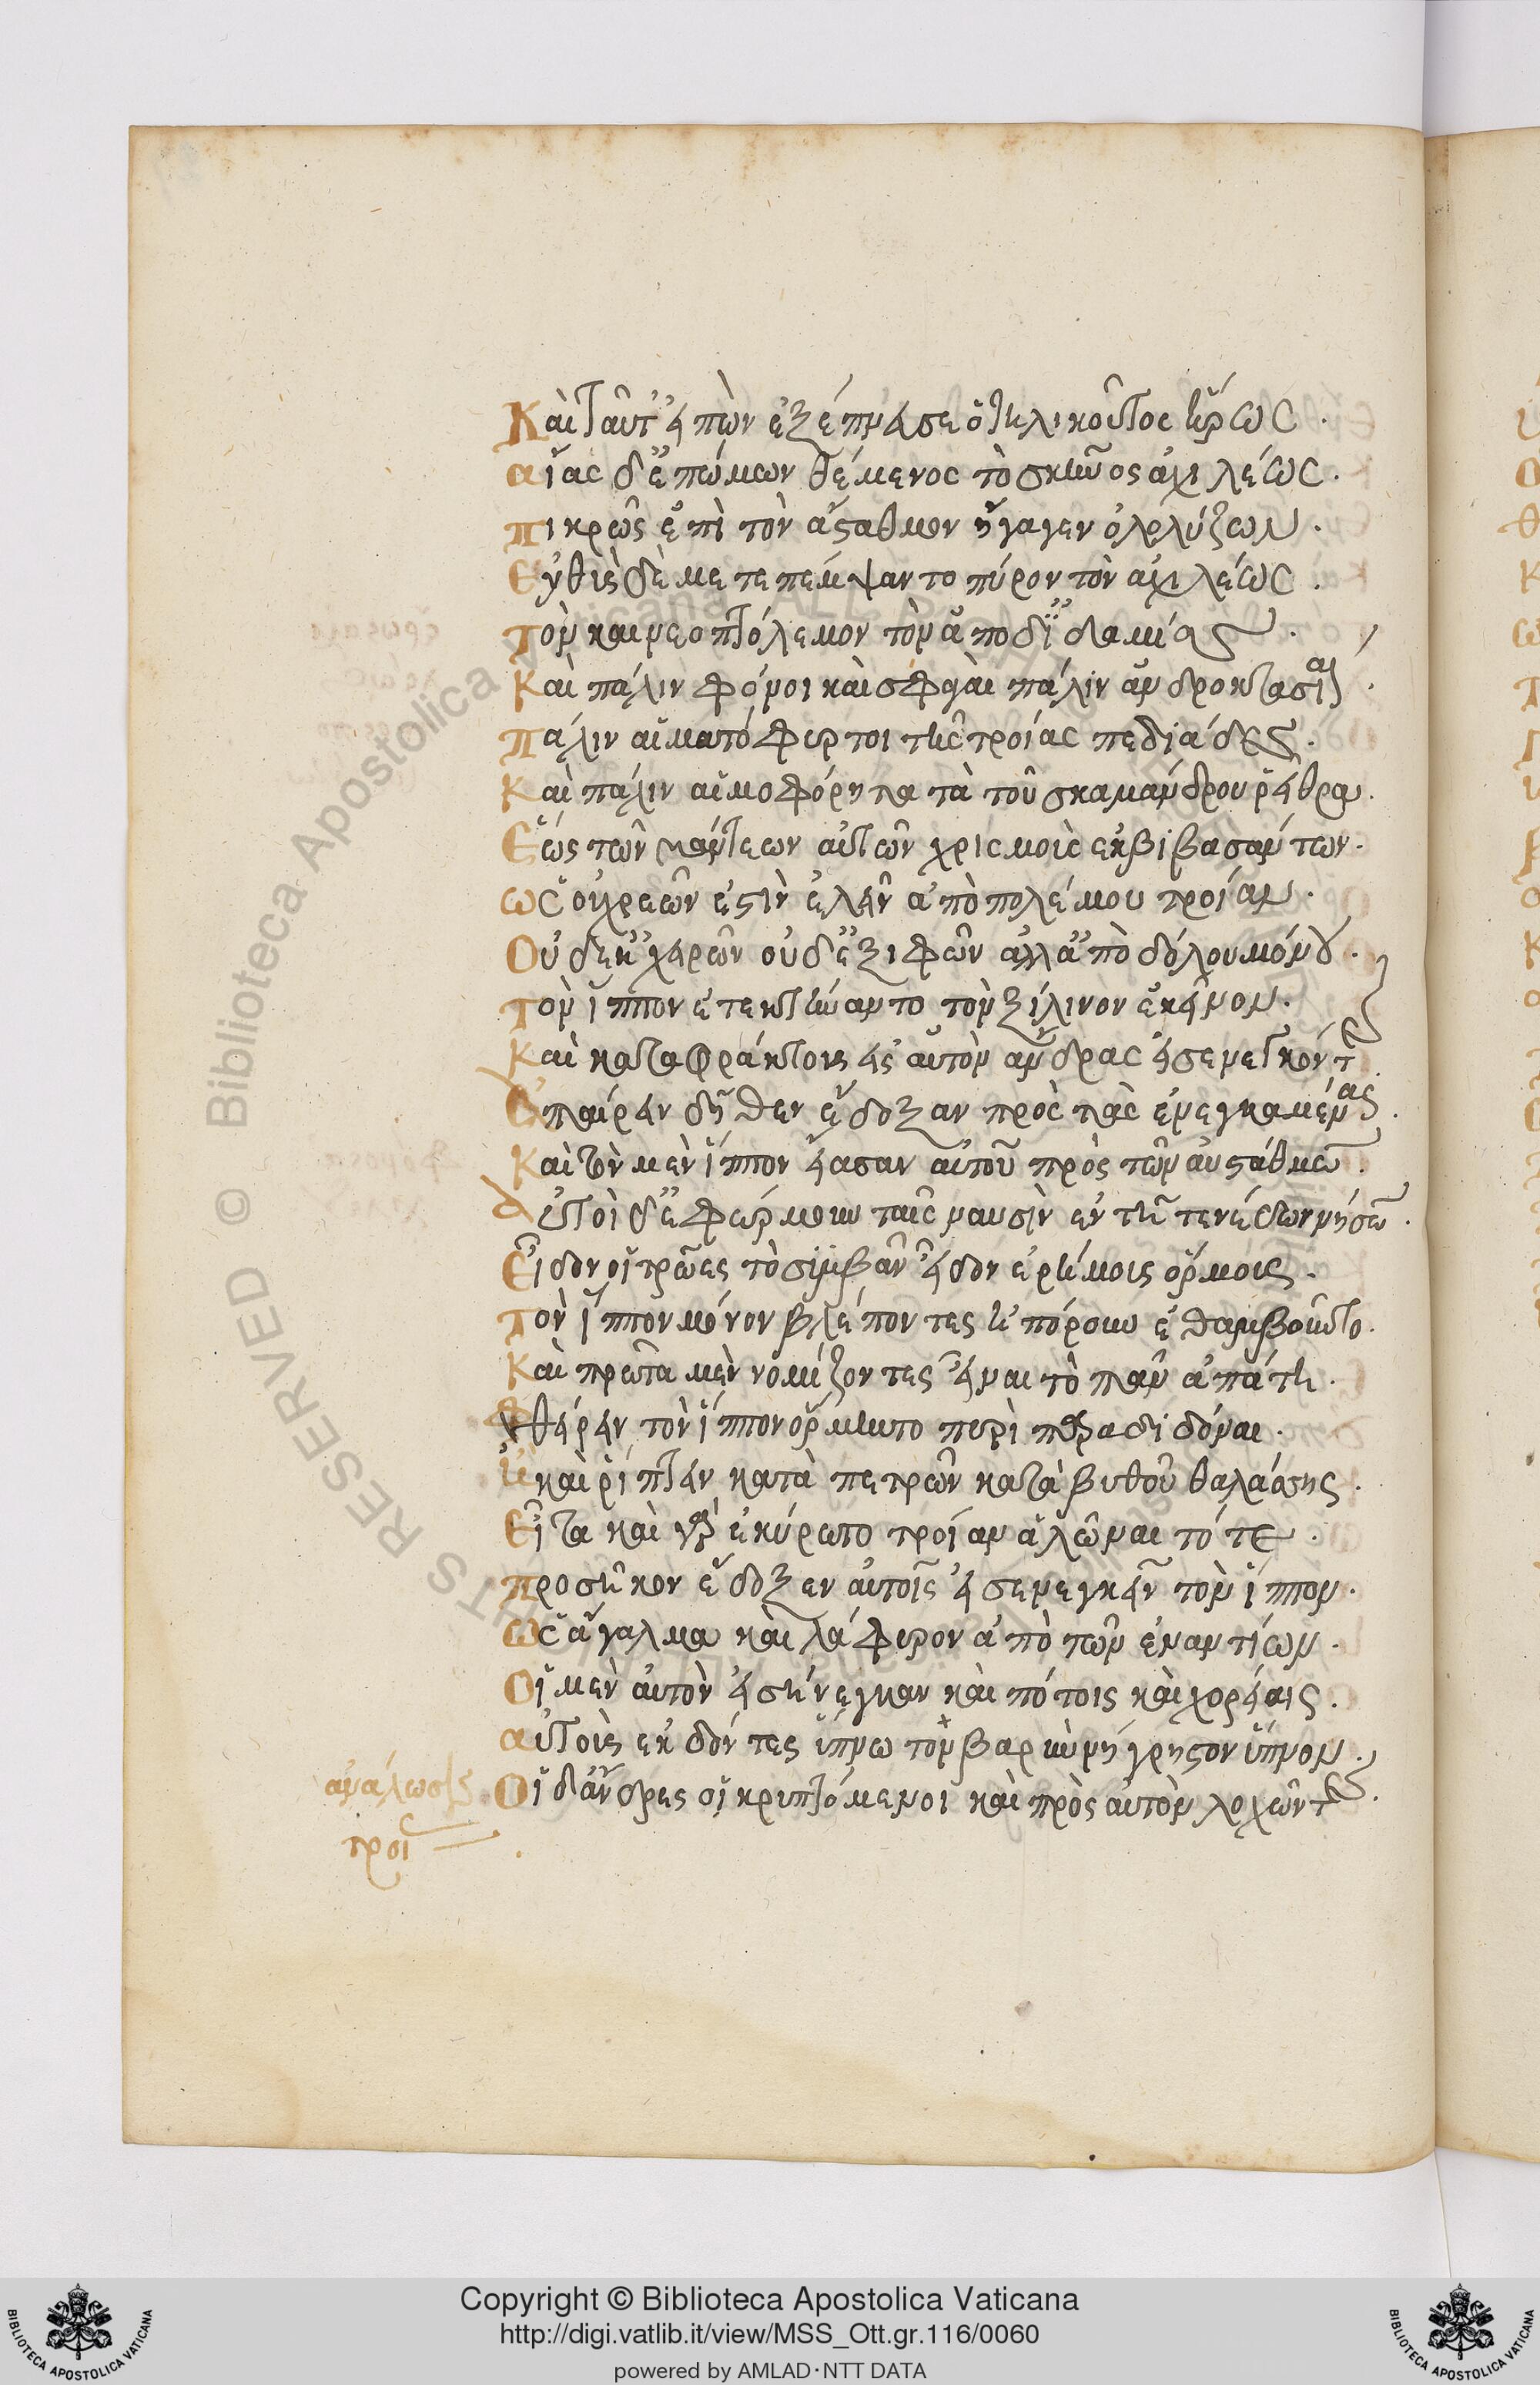 Καὶ ταῦτ' εἰπὼν ἐξέπνευσε ὁ τηλικοῦτος ἥρως.
αἴας δ' ἐπώμων θέμενος τὸ σκῆνος ἀχιλέως.
πικρῶς ἐπὶ τὸν αὔσταθμον ἤγαγεν ὀλολύζων.
Εὐθὺς δὲ μετεπέμψαντο πύρον τὸν ἀχιλέως.
Τὸν καὶ νεοπτόλεμον τὸν ἀπὸ δηϊδαμίας.
Καὶ πάλιν φόνοι καὶ σφαγαὶ πάλιν ἀνδροκτασίαι.
Πάλιν αἱματόφυρτοι τῆς τροίας πεδιάδες.
Καὶ πάλιν αἱμοφόρητα τὰ τοῦ σκαμάνδρου ῥεῖθρα.
Ἕως τῶν μάντεων αὐτῶν χρισμοὶς ἐκβιβασάντων.
ὡς οὐ χρεῶν ἐστὶν ἑλεῖν ἀπὸ πολέμου τροίαν.
Οὐδ' ἐκ χειρῶν οὐδὲ ξιφῶν ἀλλ' ἀπὸ δόλου μόνου.
Τὸν ἵππον ἐτεκτήναντο τὸν ξύλινον ἐκεῖνον.
Καὶ καταφράκτους εἰς αὐτὸν ἄνδρας εἰσενεγκόντες.
Ἀπαίρειν δῆθεν ἔδοξαν πρὸς τὰς ἐνεγκαμένας.
Καὶ τὸν μὲν ἵππον εἴασαν αὐτοῦ πρὸς τῶν αὐστάθμω.
αὐτοὶ δὲ φώρμουν ταῖς ναυσὶν ἐν τῇ τενέδων νήσω.
Εἶδον οἱ τρῶες τὸ συμβὰν εἶδον ἐρήμοις ὅρμοις.
Τὸν ἵππον μόνον βλέποντες ἠπόρουν ἐθαμβοῦντο.
Καὶ πρῶτα μὲν νομίζοντες εἶναι τὸ πᾶν ἀπάτη.
Φθείρειν τὸν ἵππον ὅρμηντο πυρὶ παραδιδόναι.
ἢ καὶ ῥίπτειν κατὰ πετρῶν κατὰ βυθοῦ θαλάσσης.
Εἶτα καὶ γὰρ ἐκύρωτο τροίαν ἁλῶναι τότε.
προσῆκον ἔδοξεν αὐτοῖς εἰσενεγκεῖν τὸν ἵππον.
ὡς ἄγαλμα καὶ λάφυρον ἀπὸ τῶν ἐναντίων.
Οἱ μὲν αὐτὸν εἰσήνεγκαν καὶ πότοις καὶ χορείαις.
αὐτοὺς ἐκδόντες ὕπνω τὸν βαρὺν νήγρηστον ὕπνον.
ἀνάλωσις τροί
Οἱ δ' ἄνδρες οἱ κρυπτόμενοι καὶ πρὸς αὐτὸν λοχῶντες.
Copyright © Biblioteca Apostolica Vaticana
http://digi.vatlib.it/view/MSS_Ott.gr.116/0060
powered by AMLAD·NTT DATA
BIBLIOTECA APOSTOLICA VATICANA
BIBLIOTECA APOSTOLICA VATICANA